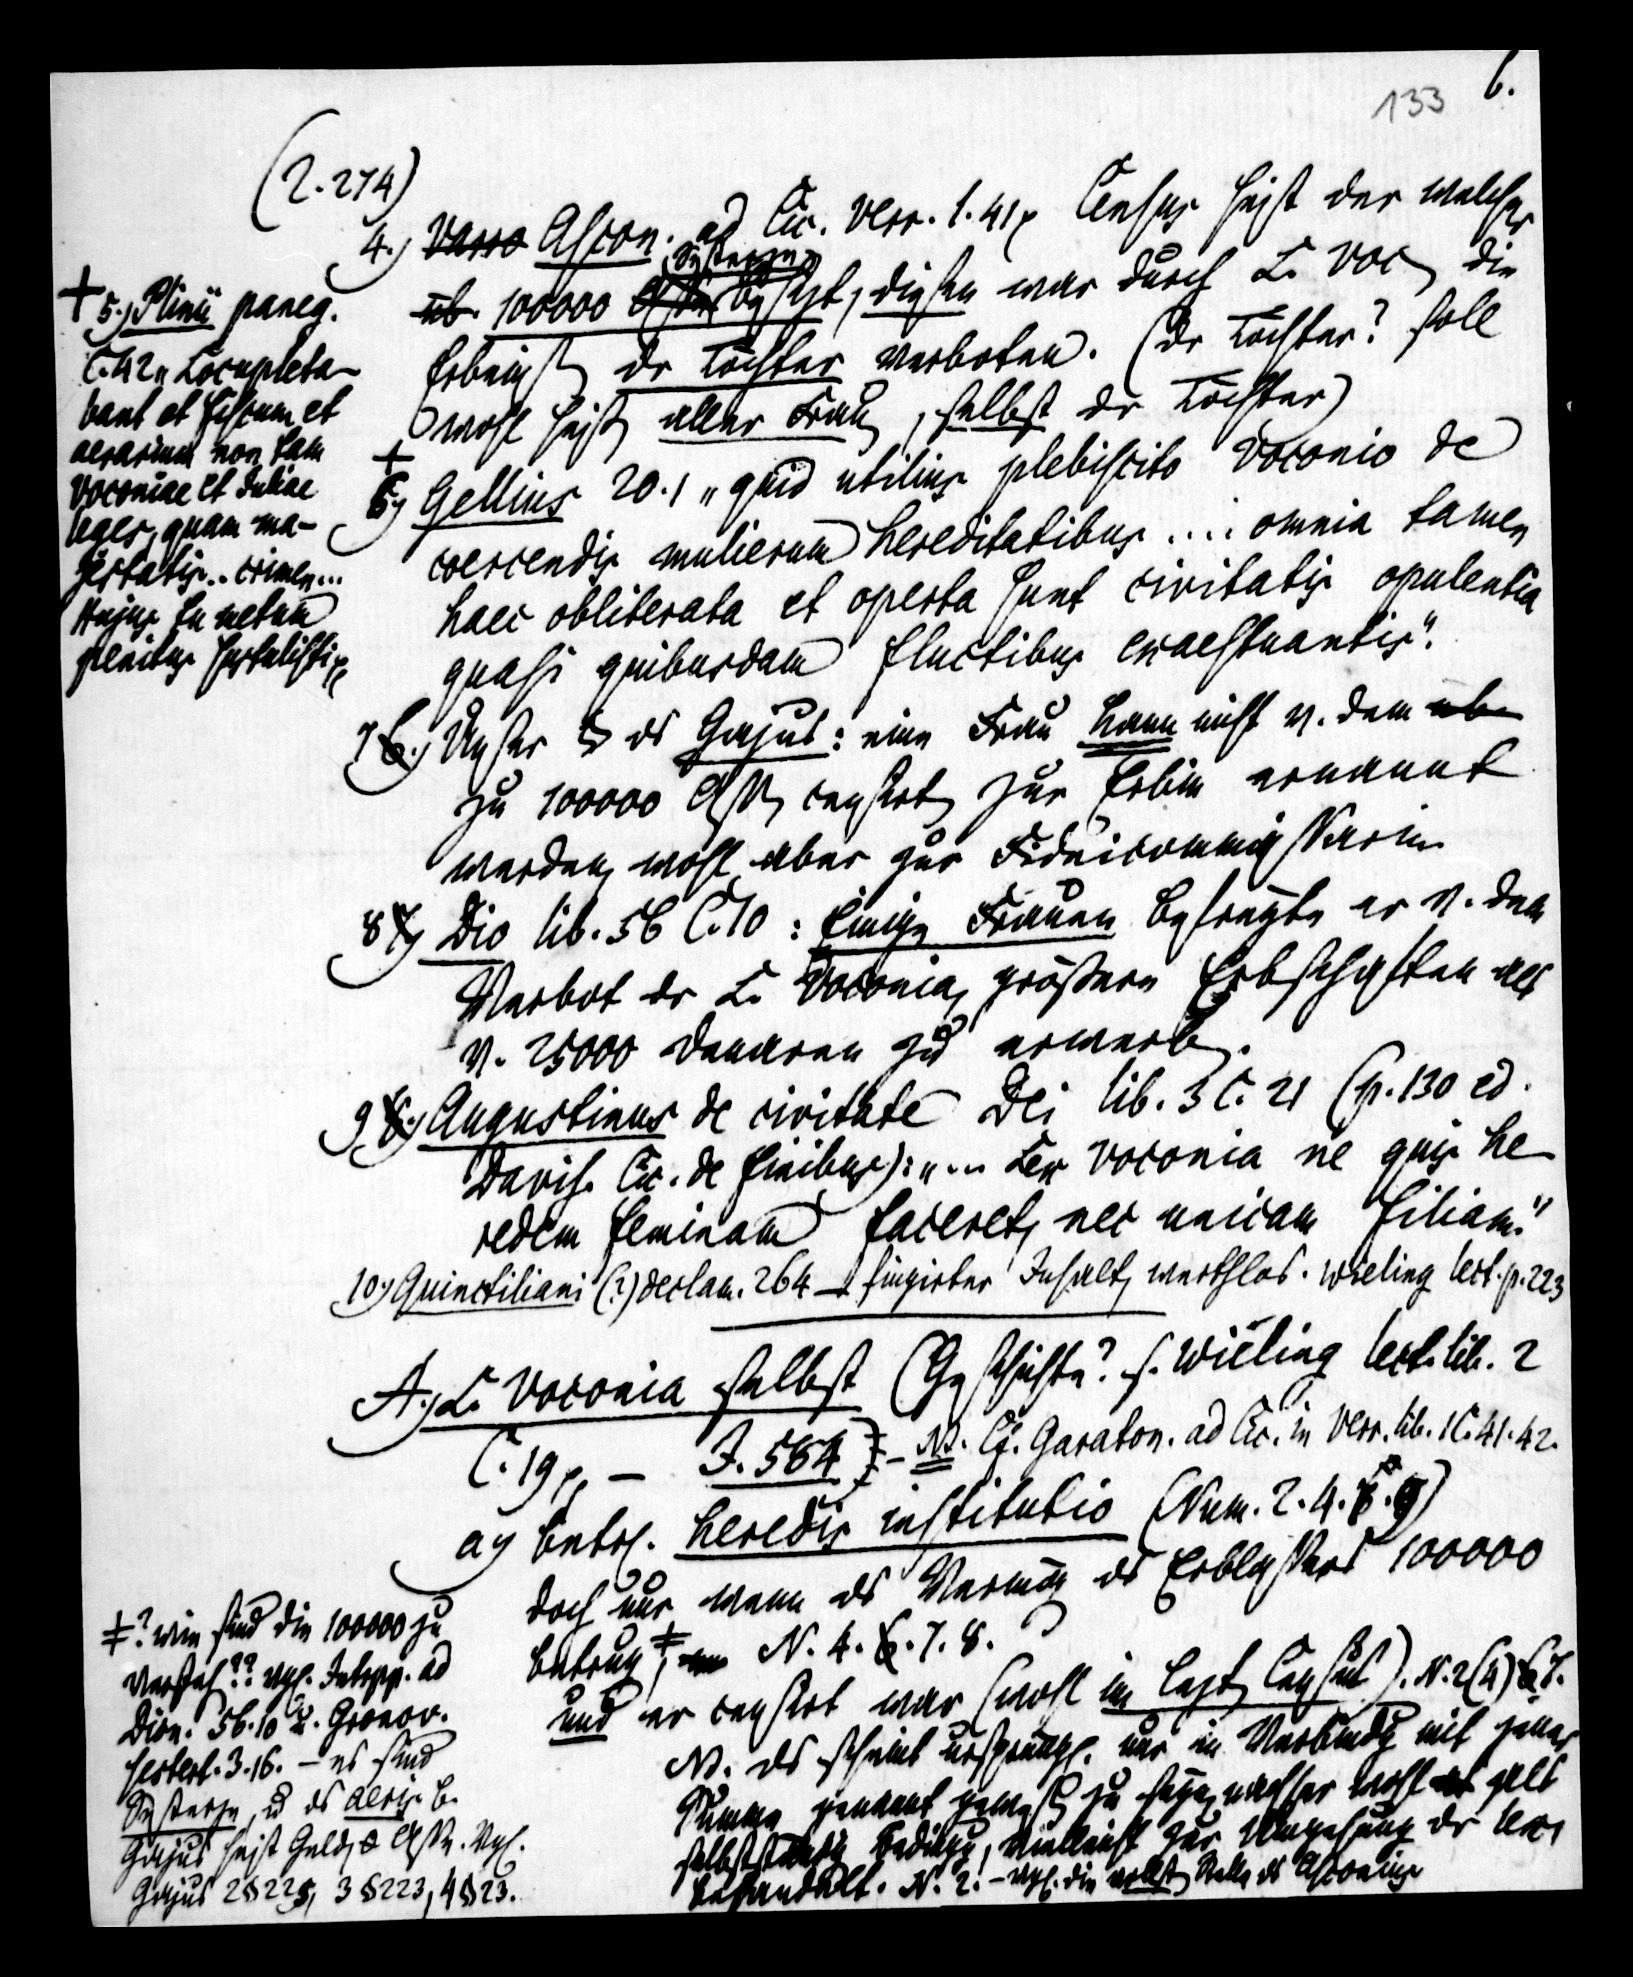 133 6.
(2.274)
4.) Varro Ascon. ad Cic. Verr. 1.41, Census heißt der welcher
üb. 100000 Sesterzen besitzt, diesen war durch L. Voc. die
Erbeins. der Töchter verboten. (der Töchter? soll
wohl heißen aller Frauen, selbst der Töchter)
+
6) Gellius 20.1 „quid utilius plebiscito Voconio de
coercendis mulierum hereditatibus .... omnia tamen
haec obliterata et operta sunt civitatis opulentia
quasi quibusdam fluctibus exaestuantis".
7 6.) Unser § des Gajus: eine Frau kann nicht v. dem üb.
zu 100000 Assen censirten zur Erbin ernannt
werden, wohl aber zur Fideicommissarin
8 7) Dio lib. 56 C. 10: Einige Frauen befreyte er v. dem
Verbot der L. Voconia, größere Erbschaften als
v. 25000 Denaren zu erwerben.
9 8.) Augustinus de civitate Dei lib. 3 C. 21 (p. 130 ed.
Davis. Cic. de finibus): „... Lex Voconia ne quis he-
redem feminam faceret, nec unicam filiam."
10) Quinctiliani (?) declam. 264 – fingirter Inhalt, werthlos. Wieling lect. p. 223
A.) L. Voconia selbst (Geschichte? s. Wieling lect. lib. 2
C. 19, – J. 584) – NB. Cf. Garaton. ad Cic. in Verr. lib. 1 C. 41. 42.
a) betr. heredis institutio (Num. 2. 4. 9)
doch nur wenn das Vermög. des Erblassers 100000
betrug, N. 4. 6. 7. 8.
und er censirt war (wohl im letzten Census). N. 2 (4) 7.
NB. das scheint ursprüngl. nur in Verbindg mit jener
Summe genannt gewesen zu seyn, nachher wohl als
selbstständig Beding., vielleicht zur Umgehung der lex
behandelt. N. 2. – Vgl. die Stelle des Asconius
+ 5.) Plinii paneg.
C. 42 „Locupleta-
bant et fiscum et
aerarium non tam
Voconiae et Juliae
leges, quam ma-
jestatis .. crimen ...
Hujus tu metum
penitus sustulisti,
‡ ? wie sind die 100000 zu
verstehn?? Vgl. Interpp. ad
Dion. 56.10 u. Gronov.
sestert. 3.16. – es sind
Sesterze, u das aeris b.
Gajus heißt Geld, Asse. Vgl.
Gajus 2 § 225, 3 § 223, 4 § 23.